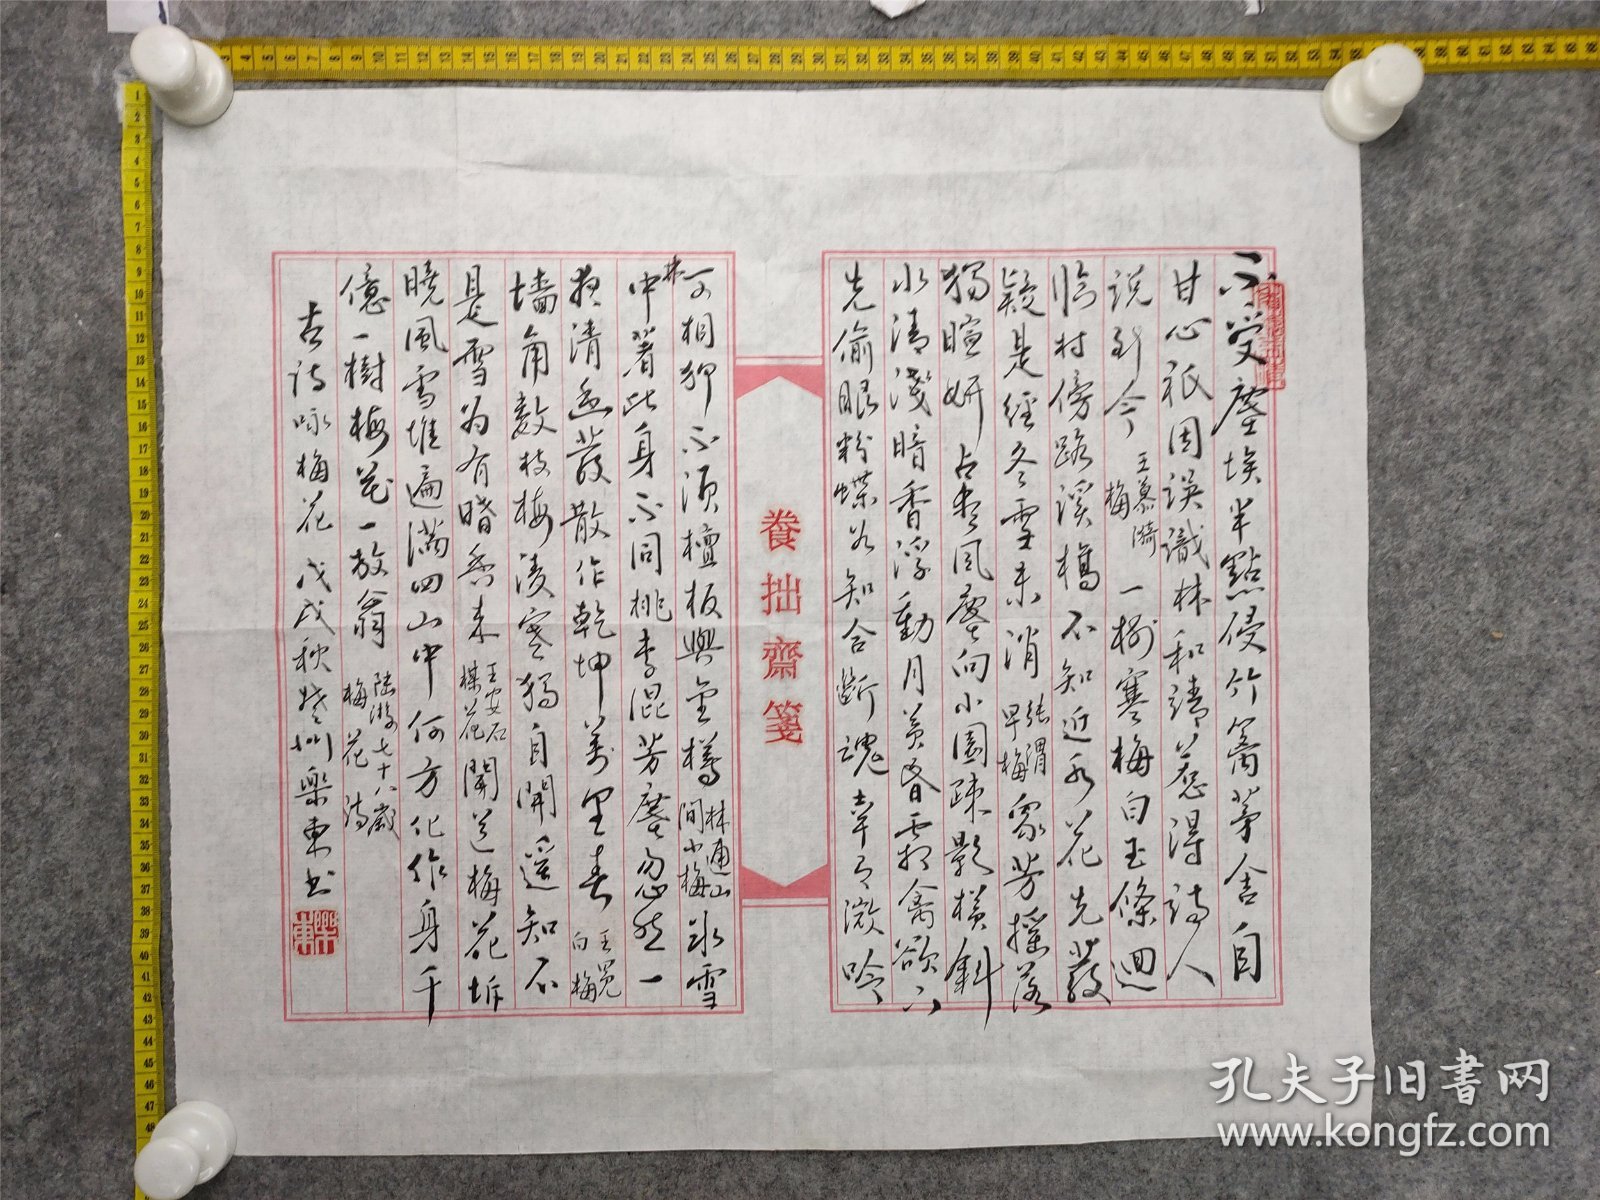 不受塵埃半點侵竹籬茅舍自
甘心祇因誤識林和靖惹得詩人
說到今
王慕漪
梅
一樹寒梅白玉條迥
臨村傍路溪橋不知近水花先發
疑是經冬雪未消
張渭
早梅
衆芳搖落
獨暄妍占盡風塵向小園疎影橫斜
水清淺暗香浮動月黃昏霜禽欲下
先偷眼粉蝶如知合斷魂幸有微吟
可相狎不須檀板與金樽
林逋山
間小梅
冰雪
林
中著此身不同桃李混芳塵忽然一
夜清香發散作乾坤萬里春
王冕
白梅
墻角數枝梅凌寒獨自開遥知不
是雪为有暗香来
王安石
梅花
聞道梅花坼
曉風雪堆遍滿四山中何方化作身千
億一樹梅花一放翁
陆游七十八歲
梅花詩
古诗咏梅花 戊戌秋 州樂東书
養拙齋箋
樂東
孔夫子旧書网
www.kongfz.com